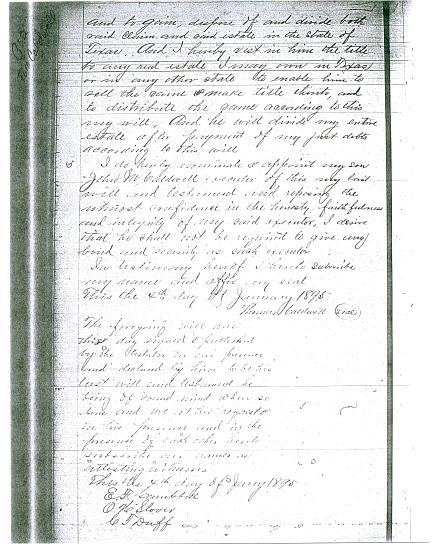 and to gain, dispose of and divide both
said claim and said estate in the state of
Texas. And I hereby vest in him the title
to any real estate I may own in Texas
or in any other state to enable him to
sell the same & make title thereto, and
to distribute the same according to this
my will, And he will divide my entire
estate after payment of my just debts
according to this will
5 I do hereby nominate & appoint my son
John W Caldwell executor of this my last
will and testament and reposing the
utmost confidence in the honesty, faithfulness
and integrity of my said executor, I desire
that he shall not be required to give any
bond and security as such executor
In testimony hereof I hereto subscribe
my name and affix my seal
This the 4th day of January 1895
Thomas Caldwell (seal)
The foregoing will was
this day signed & published
by the testator in our presence
and declared by him to be his
last will and testament he
being of sound mind when so
done and we at his request
in his presence and in the
presence of each other hereto
subscribe our names as
attesting witnesses
This the 4th day of Jany 1895
E. F.
O. H. Glover
C T Duff